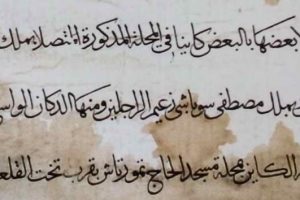 بعضها بالبعض كاينا في المحلة المذكورة المتصلا بملك
بملك مصطفى سوباشي زعيم الراحلين ومنها الدكان الواس
الكاين بمحلة مسجد الحاج تمورتاش بقرب تحت القلعه